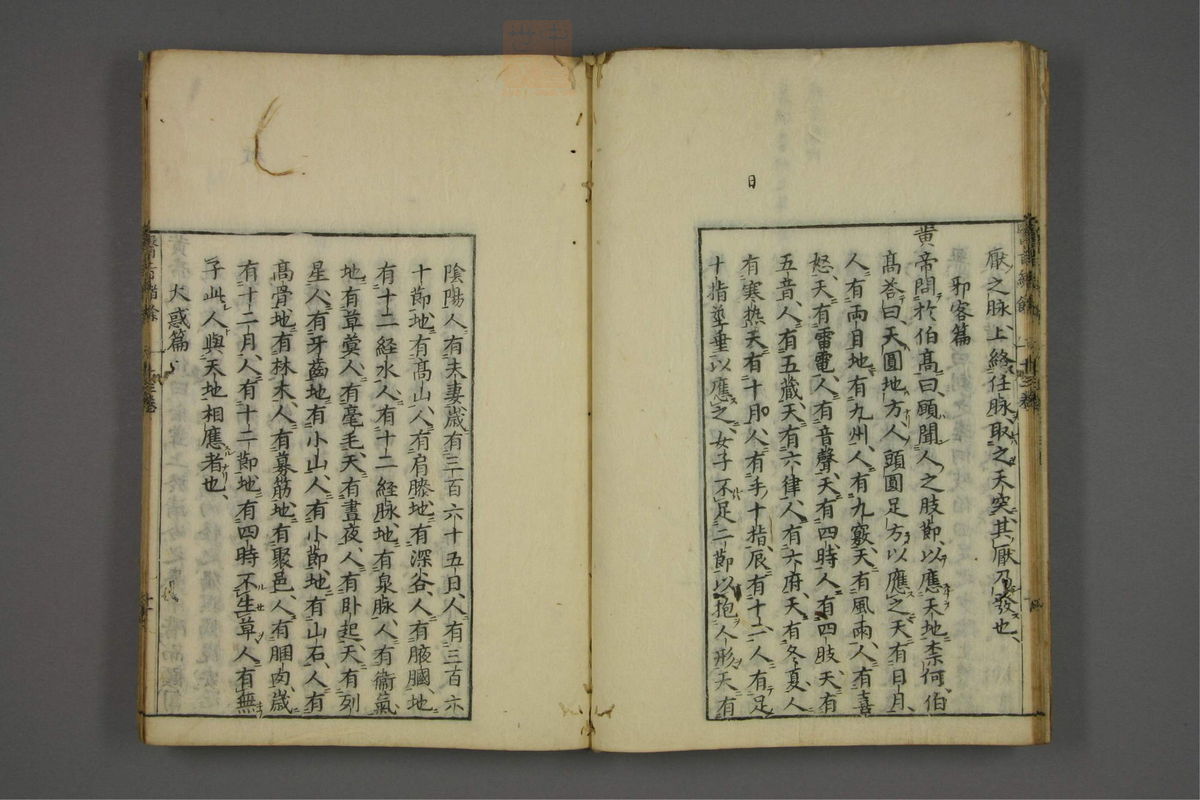 日
厥之脉上絡任脉取之天突其厥乃發也、
邪客篇
黄帝問於伯髙曰願聞人之肢節以應天地柰何伯
髙荅曰天圓地方人頭圓足方以應之天有日月
人有兩目地有九州人有九竅天有風雨人有喜
怒天有雷電人有音聲天有四時人有四肢天有
五音人有五藏天有六律人有六府天有冬夏人
有寒热天有十日人有手十指辰有十二人有足
十指莖垂以應之女子不足二節以抱人形天有
陰陽人有夫妻歳有三百六十五日人有三百六
十節地有髙山人有肩膝地有深谷人有腋膕地
有十二経水人有十二経脉地有泉脉人有衛氣
地有草蓂人有毫毛天有晝夜人有卧起天有列
星人有牙齒地有小山人有小節地有山石人有
髙骨地有林木人有募筋地有聚邑人有䐃肉歳
有十二月人有十二節地有四時不生草人有無
子此人與天地相應者也、
大惑篇